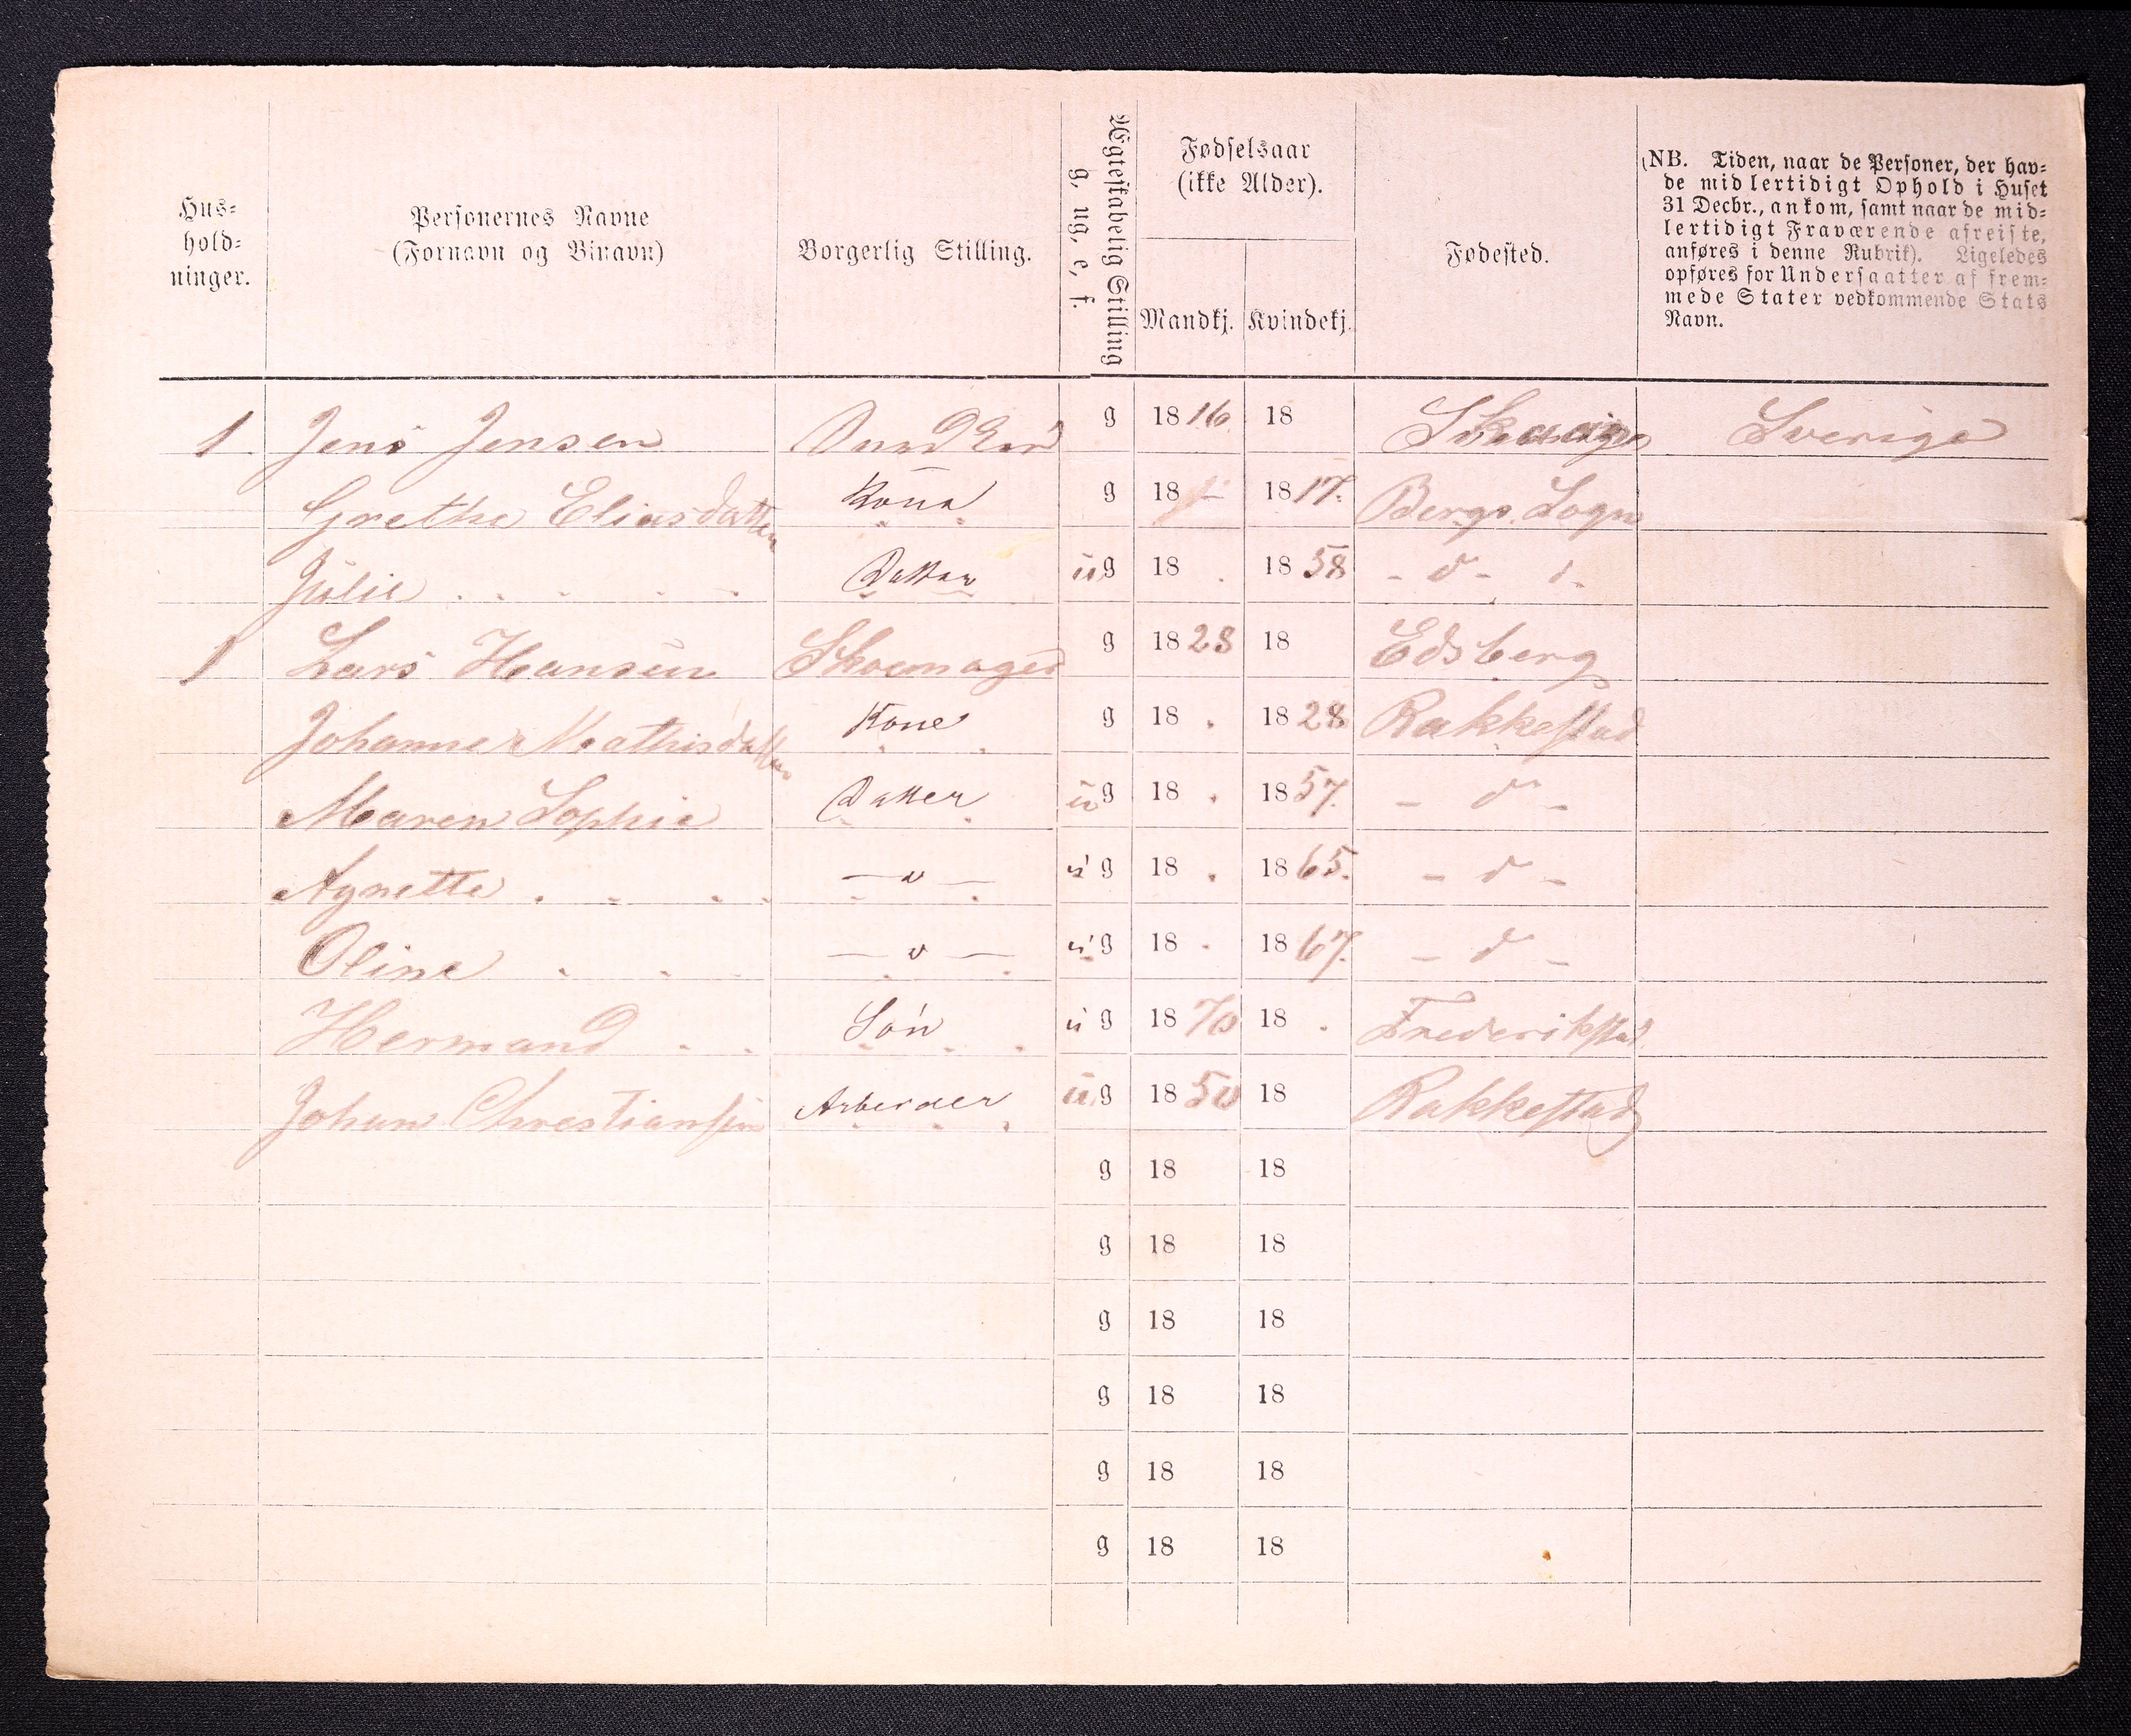 Hus-
hold-
ninger.
Personernes Navne
(Fornavn og Binavn)
Borgerlig Stilling.
Ægteskabelig Stilling
g, ug, e, f.
Fødselsaar
(ikke Alder).
Mandkj. Kvindekj.
Fødested.
(NB. Tiden, naar de Personer, der hav-
de midlertidigt Ophold i Huset
31 Decbr., ankom, samt naar de mid-
lertidigt Fraværende afreiste,
anføres i denne Rubrik). Ligeledes
opføres for Undersaatter af frem-
mede Stater vedkommende Stats
Navn.
1 Jens Jensen g 1816 18 Sverige
Grethe Eliasdatter Kona g 18 1817. Bergs Sogn
Julie Datter ug 18 1858 - d -
1 Lars Hansen Skomager g 1828 18 Edsberg
Johanne Mathisdatter Kone g 18 1828 Rakkestad
Maren Sophie Datter ug 18 1857. - d -
Agnette - " - ug 18 1865. - d -
Oline - " - ug 18 1867. - d -
Hermand Søn ug 1870 18 Frederikstad
Johan Chrestiansen Arbeider ug 1850 18 Rakkestad
g 18 18
g 18 18
g 18 18
g 18 18
g 18 18
g 18 18